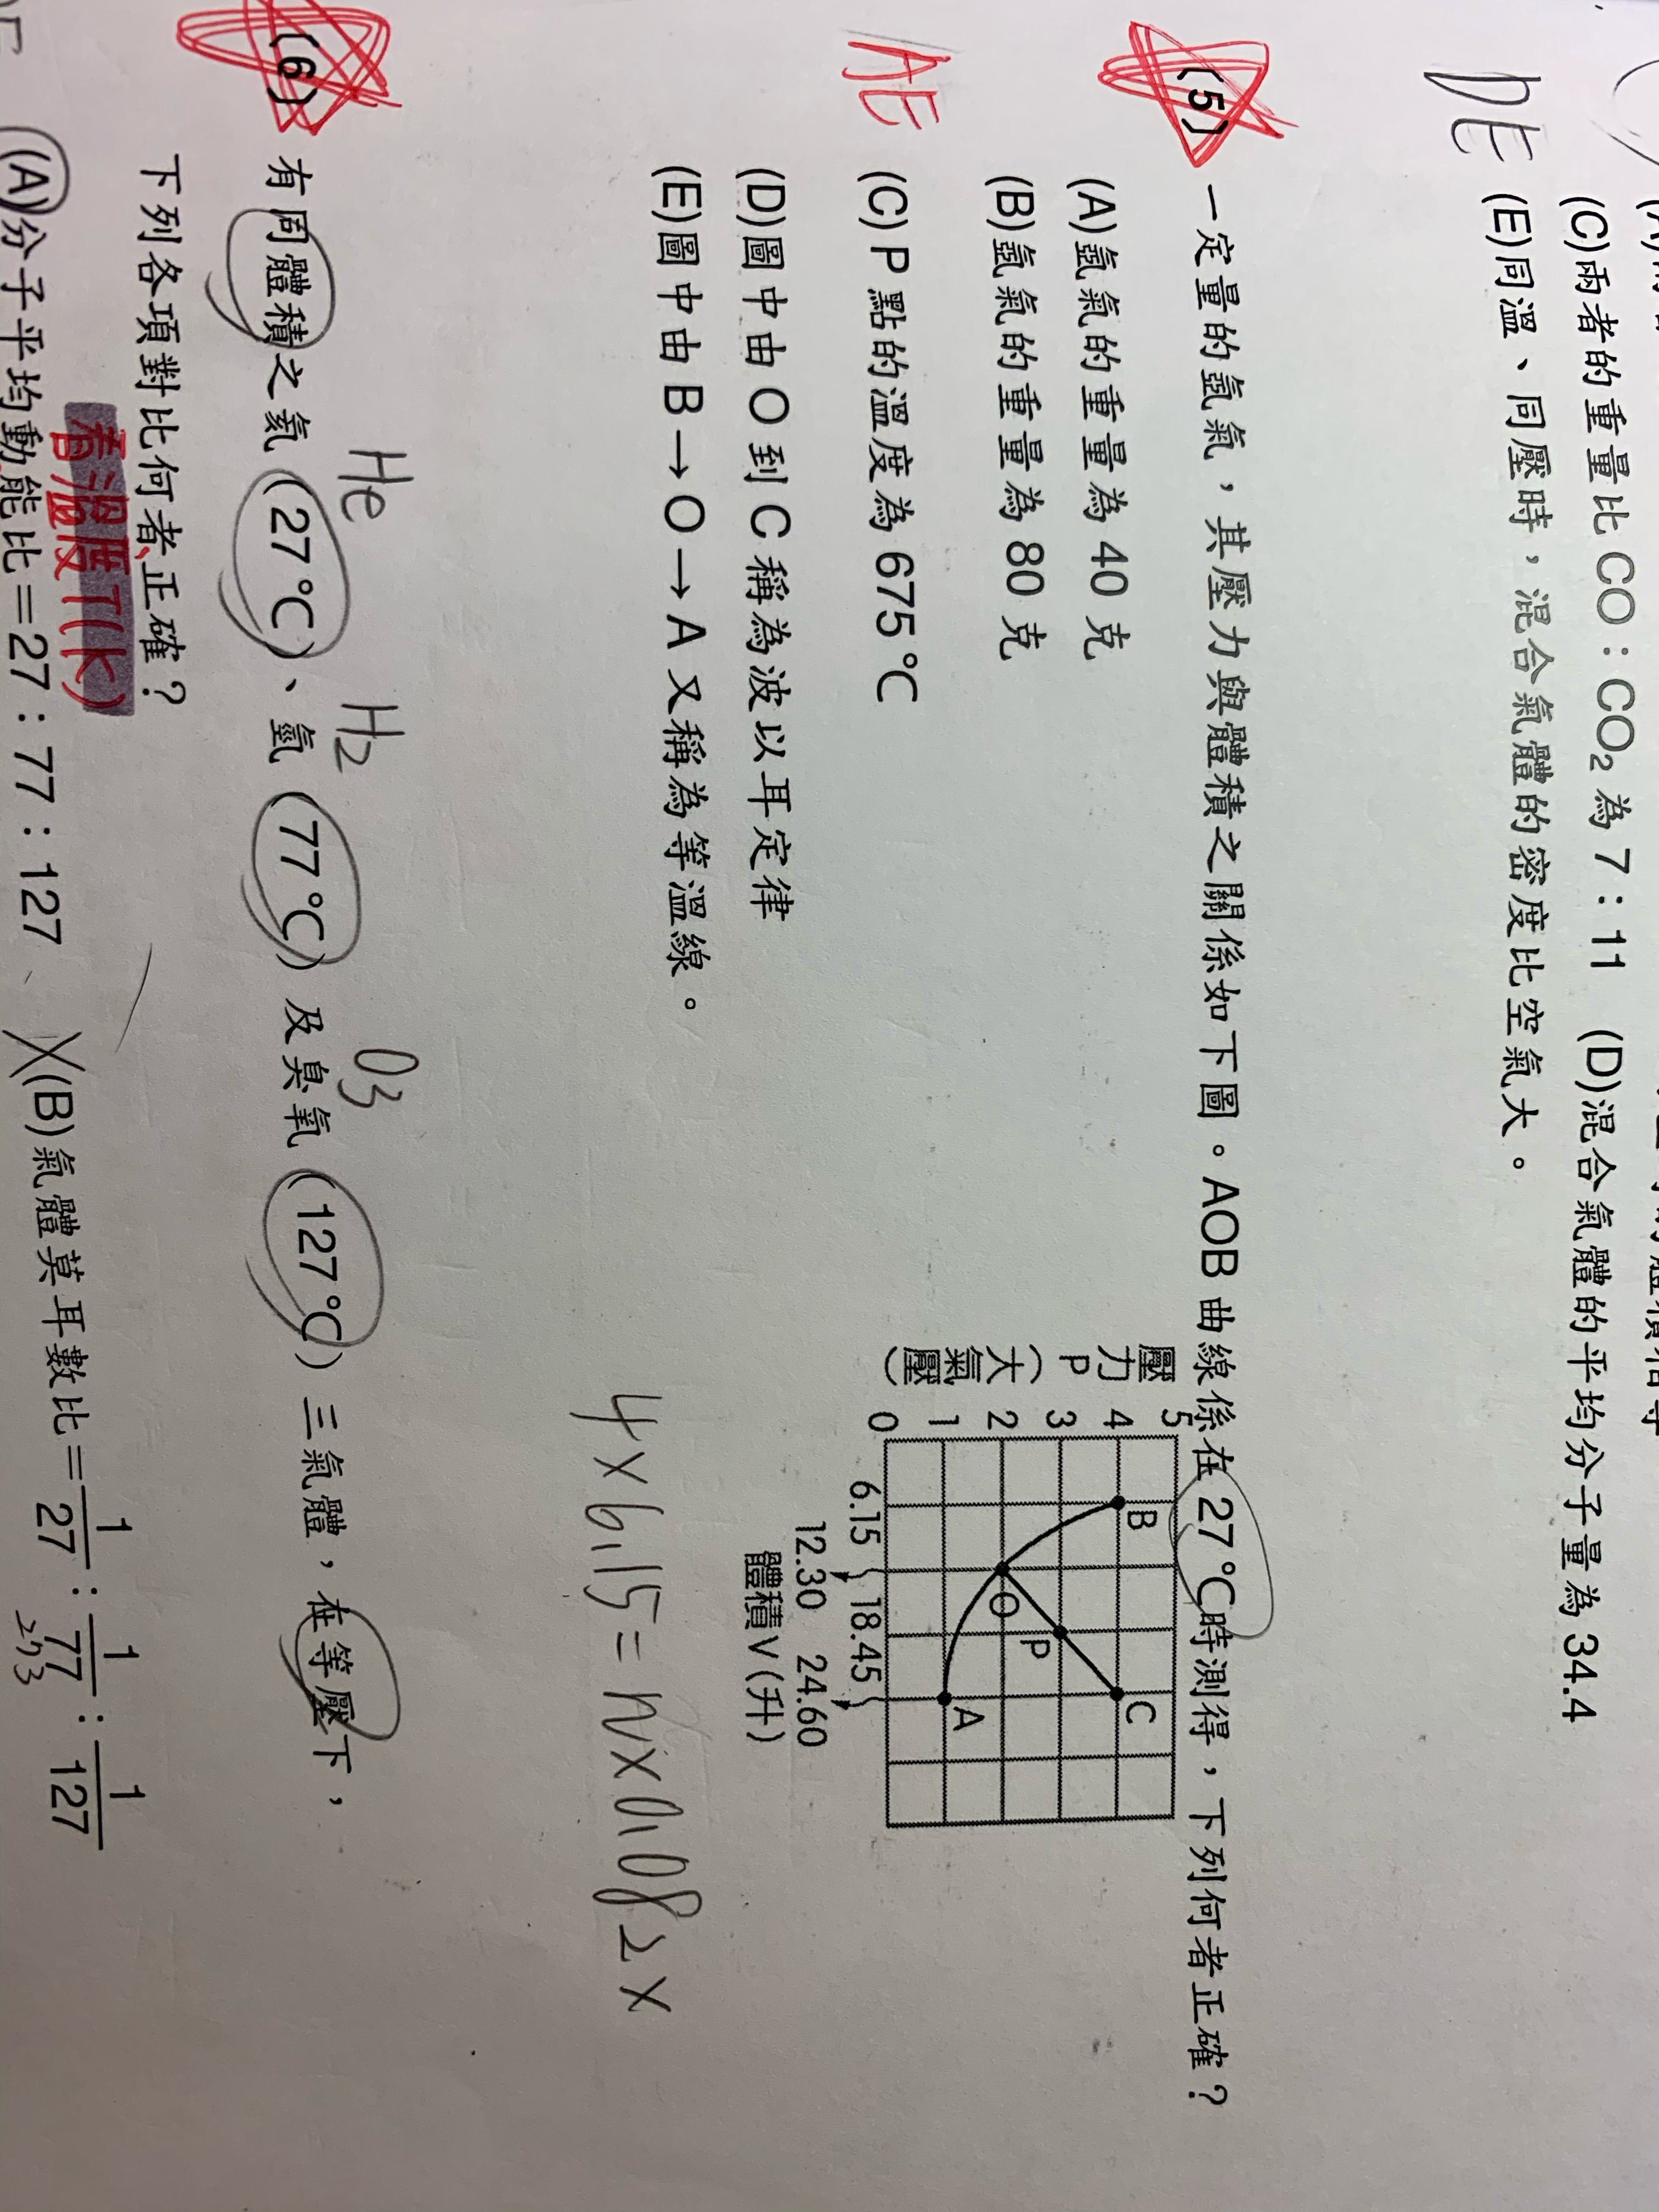 (C)兩者的重量比 CO：CO₂ 為 7：11 (D)混合氣體的平均分子量為 34.4
DE (E)同溫、同壓時，混合氣體的密度比空氣大。
(5) 一定量的氬氣，其壓力與體積之關係如下圖。AOB 曲線係在 27℃時測得，下列何者正確？
(A)氬氣的重量為 40 克
(B)氬氣的重量為 80 克
AE (C) P 點的溫度為 675℃
(D)圖中由 O 到 C 稱為波以耳定律
(E)圖中由 B→O→A 又稱為等溫線。
壓力 P（大氣壓）
5
4
3
2
1
0
B
C
P
O
A
6.15 18.45
12.30 24.60
體積V(升)
4×6.15=n×0.082×
He H2 O3
(6) 有同體積之氦（27℃）、氫（77℃）及臭氧（127℃）三氣體，在等壓下，
下列各項對比何者正確？
看溫度T(K)
(A)分子平均動能比＝27：77：127 (B)氣體莫耳數比＝1/27：1/77：1/127
273